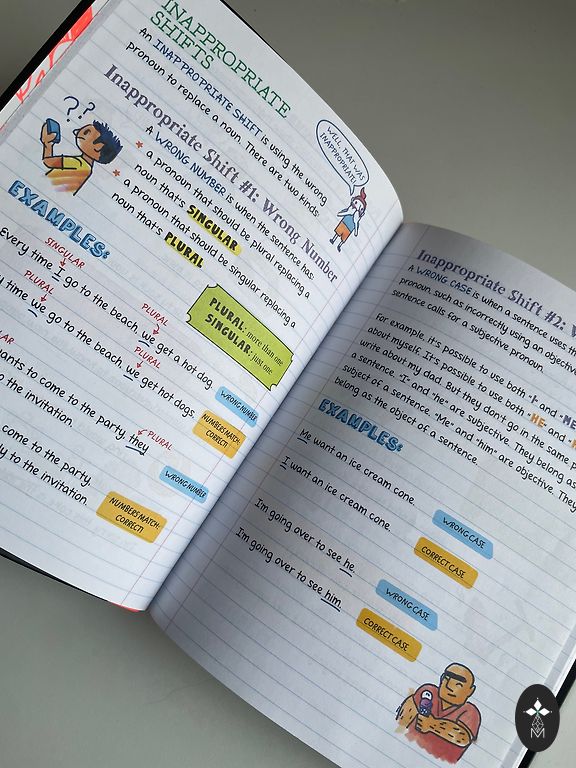 INAPPROPRIATE
SHIFTS
An INAPPROPRIATE SHIFT is using the wrong
pronoun to replace a noun. There are two kinds:
Inappropriate Shift #1: Wrong Number
WELL, THAT WAS
INAPPROPRIATE!
? ?
A WRONG NUMBER is when the sentence has:
a pronoun that should be plural replacing a
noun that's SINGULAR
a pronoun that should be singular replacing a
noun that's PLURAL
PLURAL: more than one
SINGULAR: just one
EXAMPLES:
SINGULAR
PLURAL
Every time I go to the beach, we get a hot dog.
WRONG NUMBER
PLURAL
PLURAL
time we go to the beach, we get hot dogs.
NUMBERS MATCH:
CORRECT!
PLURAL
to come to the party, they
the invitation.
WRONG NUMBER
come to the party.
to the invitation.
NUMBERS MATCH:
CORRECT!
Inappropriate Shift #2:
A WRONG CASE is when a sentence uses
pronoun, such as incorrectly using an
sentence calls for a subjective pronoun.
For example, it's possible to use both -I- and
about myself. It's possible to use both -HE- and
write about my dad. But they don't go in the same
a sentence. "I" and "he" are subjective. They belong as
subject of a sentence. "Me" and "him" are objective. They
belong as the object of a sentence.
EXAMPLES:
Me want an ice cream cone.
WRONG CASE
I want an ice cream cone.
CORRECT CASE
I'm going over to see he.
WRONG CASE
I'm going over to see him.
CORRECT CASE
M